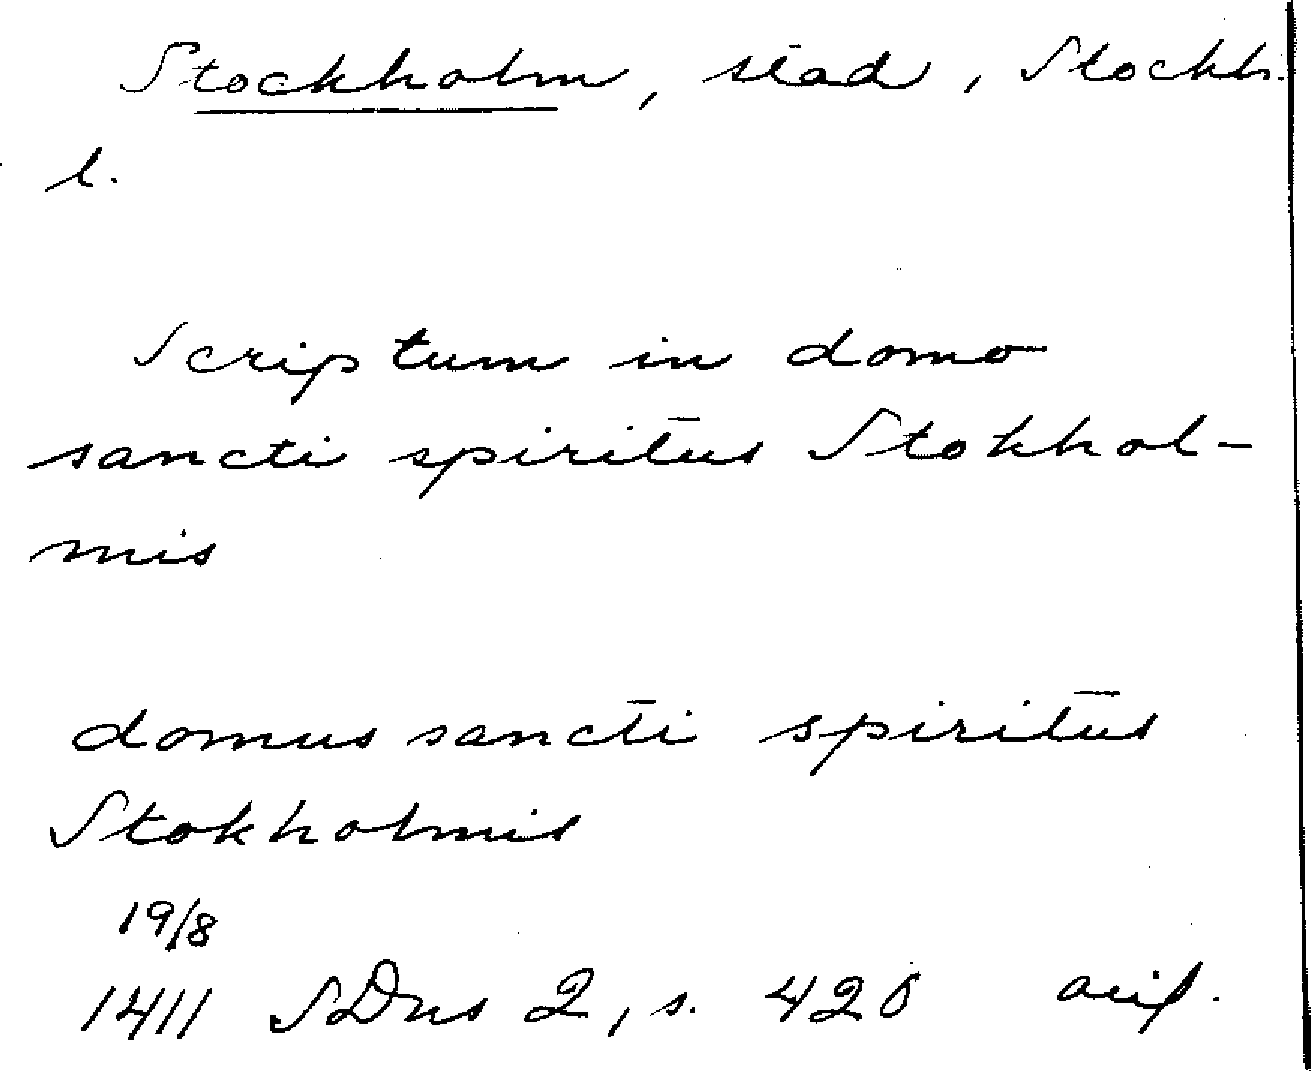 Stockholm, stad, Stockh.
l.
Scriptum in domo
sancti spiritus Stokhol-
mis
domus sancti spiritus
Stokholmis
19/8
1411 SDns 2, s. 420